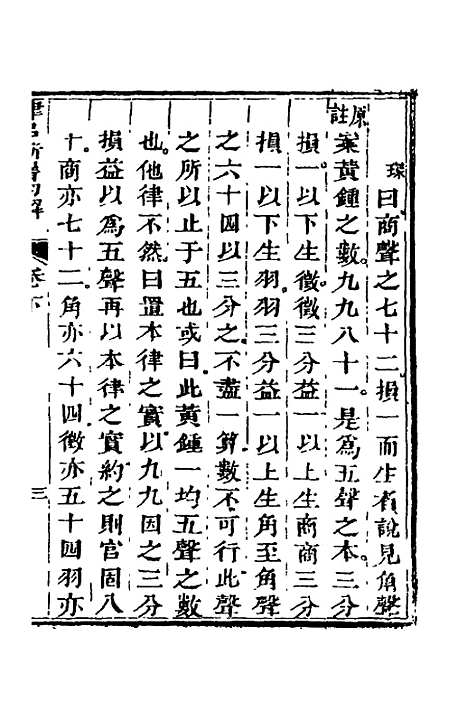 琛曰商聲之七十二損一而生者說見角聲
原註
案黃鍾之數九九八十一是爲五聲之本三分
損一以下生徵徵三分益一以上生商商三分
損一以下生羽羽三分益一以上生角至角聲
之六十四以三分之不盡一算數不可行此聲
之所以止于五也或曰此黃鍾一均五聲之數
也他律不然曰置本律之實以九九因之三分
損益以爲五聲再以本律之實約之則宮固八
十商亦七十二角亦六十四徵亦五十四羽亦
卷下
三